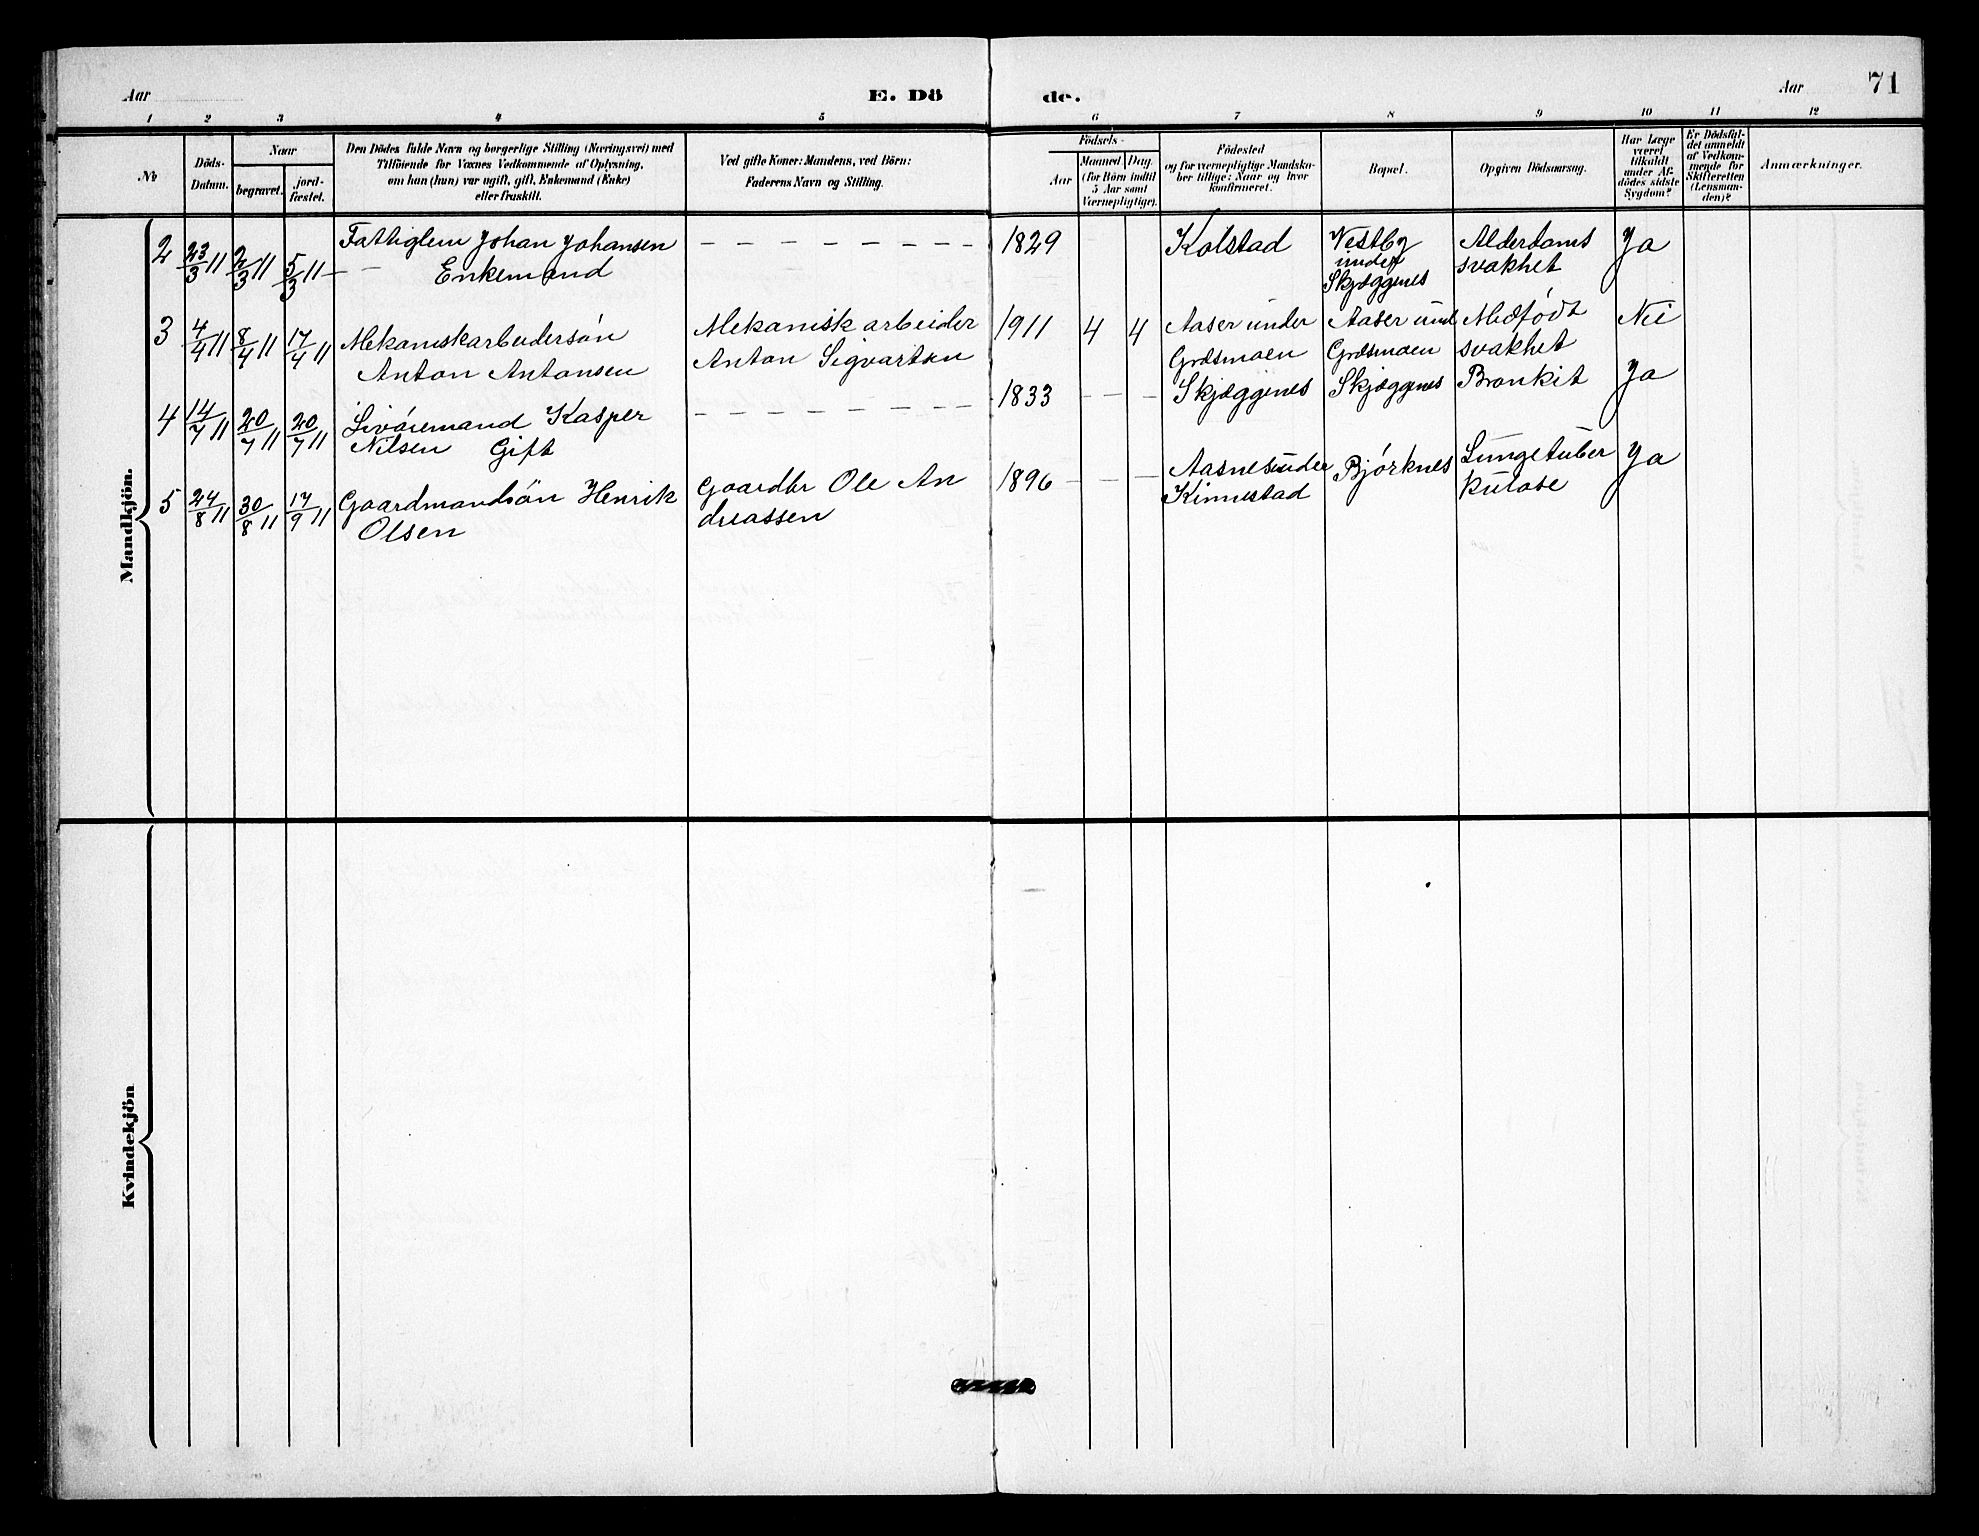 Aar
E. Dö
de.
Aar
71
1 2 3 4 5 6 7 8 9 10 11 12
№
Döds-
Datum.
Naar
begravet.
jord-
fæstet.
Den Dödes fulde Navn og borgerlige Stilling (Næringsvei) med
Tilföiende for Voxnes Vedkommende af Oplysning,
om han (hun) var ugift, gift, Enkemand (Enke)
eller fraskilt.
Ved gifte Koner: Mandens, ved Börn:
Faderens Navn og Stilling.
Födsels-
Aar
Maaned
Dag.
(for Börn indtil
5 Aar samt
Værnepligtige).
Födested
og for værnepligtige Mandska-
ber tillige: Naar og hvor
konfirmeret.
Bopæl.
Opgiven Dödsaarsag.
Har Læge
været
tilkaldt
under Af-
dödes sidste
Sygdom?
Er Dödsfal-
det anmeldt
af Vedkom-
mende for
Skifteretten
(Lensman-
den)?
Anmærkninger.
Mandkjön.
2 23/3 11 2/3 11 5/3 11 Fattiglem Johan Johansen - - - - - - - - 1829 Kolstad Vestby Alderdoms Ja
Enkemand under svakhet
Skjæggenes
3 4/4 11 8/4 11 17/4 11 Mekaniskarbeidersøn Mekanisk arbeider 1911 4 4 Aaser under Aaser und Medfødt Nei
Anton Antonsen Anton Sigvartsen Græsmoen Græsmoen svakhet
4 14/7 11 20/7 11 20/7 11 Livøremand Kasper - - - - - - - - 1833 - - - Skjæggenes Skjæggenes Bronkit Ja
Nilsen Gift
5 24/8 11 30/8 11 17/9 11 Gaardmandsøn Henrik Gaardbr Ole An 1896 - - - Aasnes under Bjørknes Lungetuber Ja
Olsen dreassen Kinnestad kulose
Kvindekjön